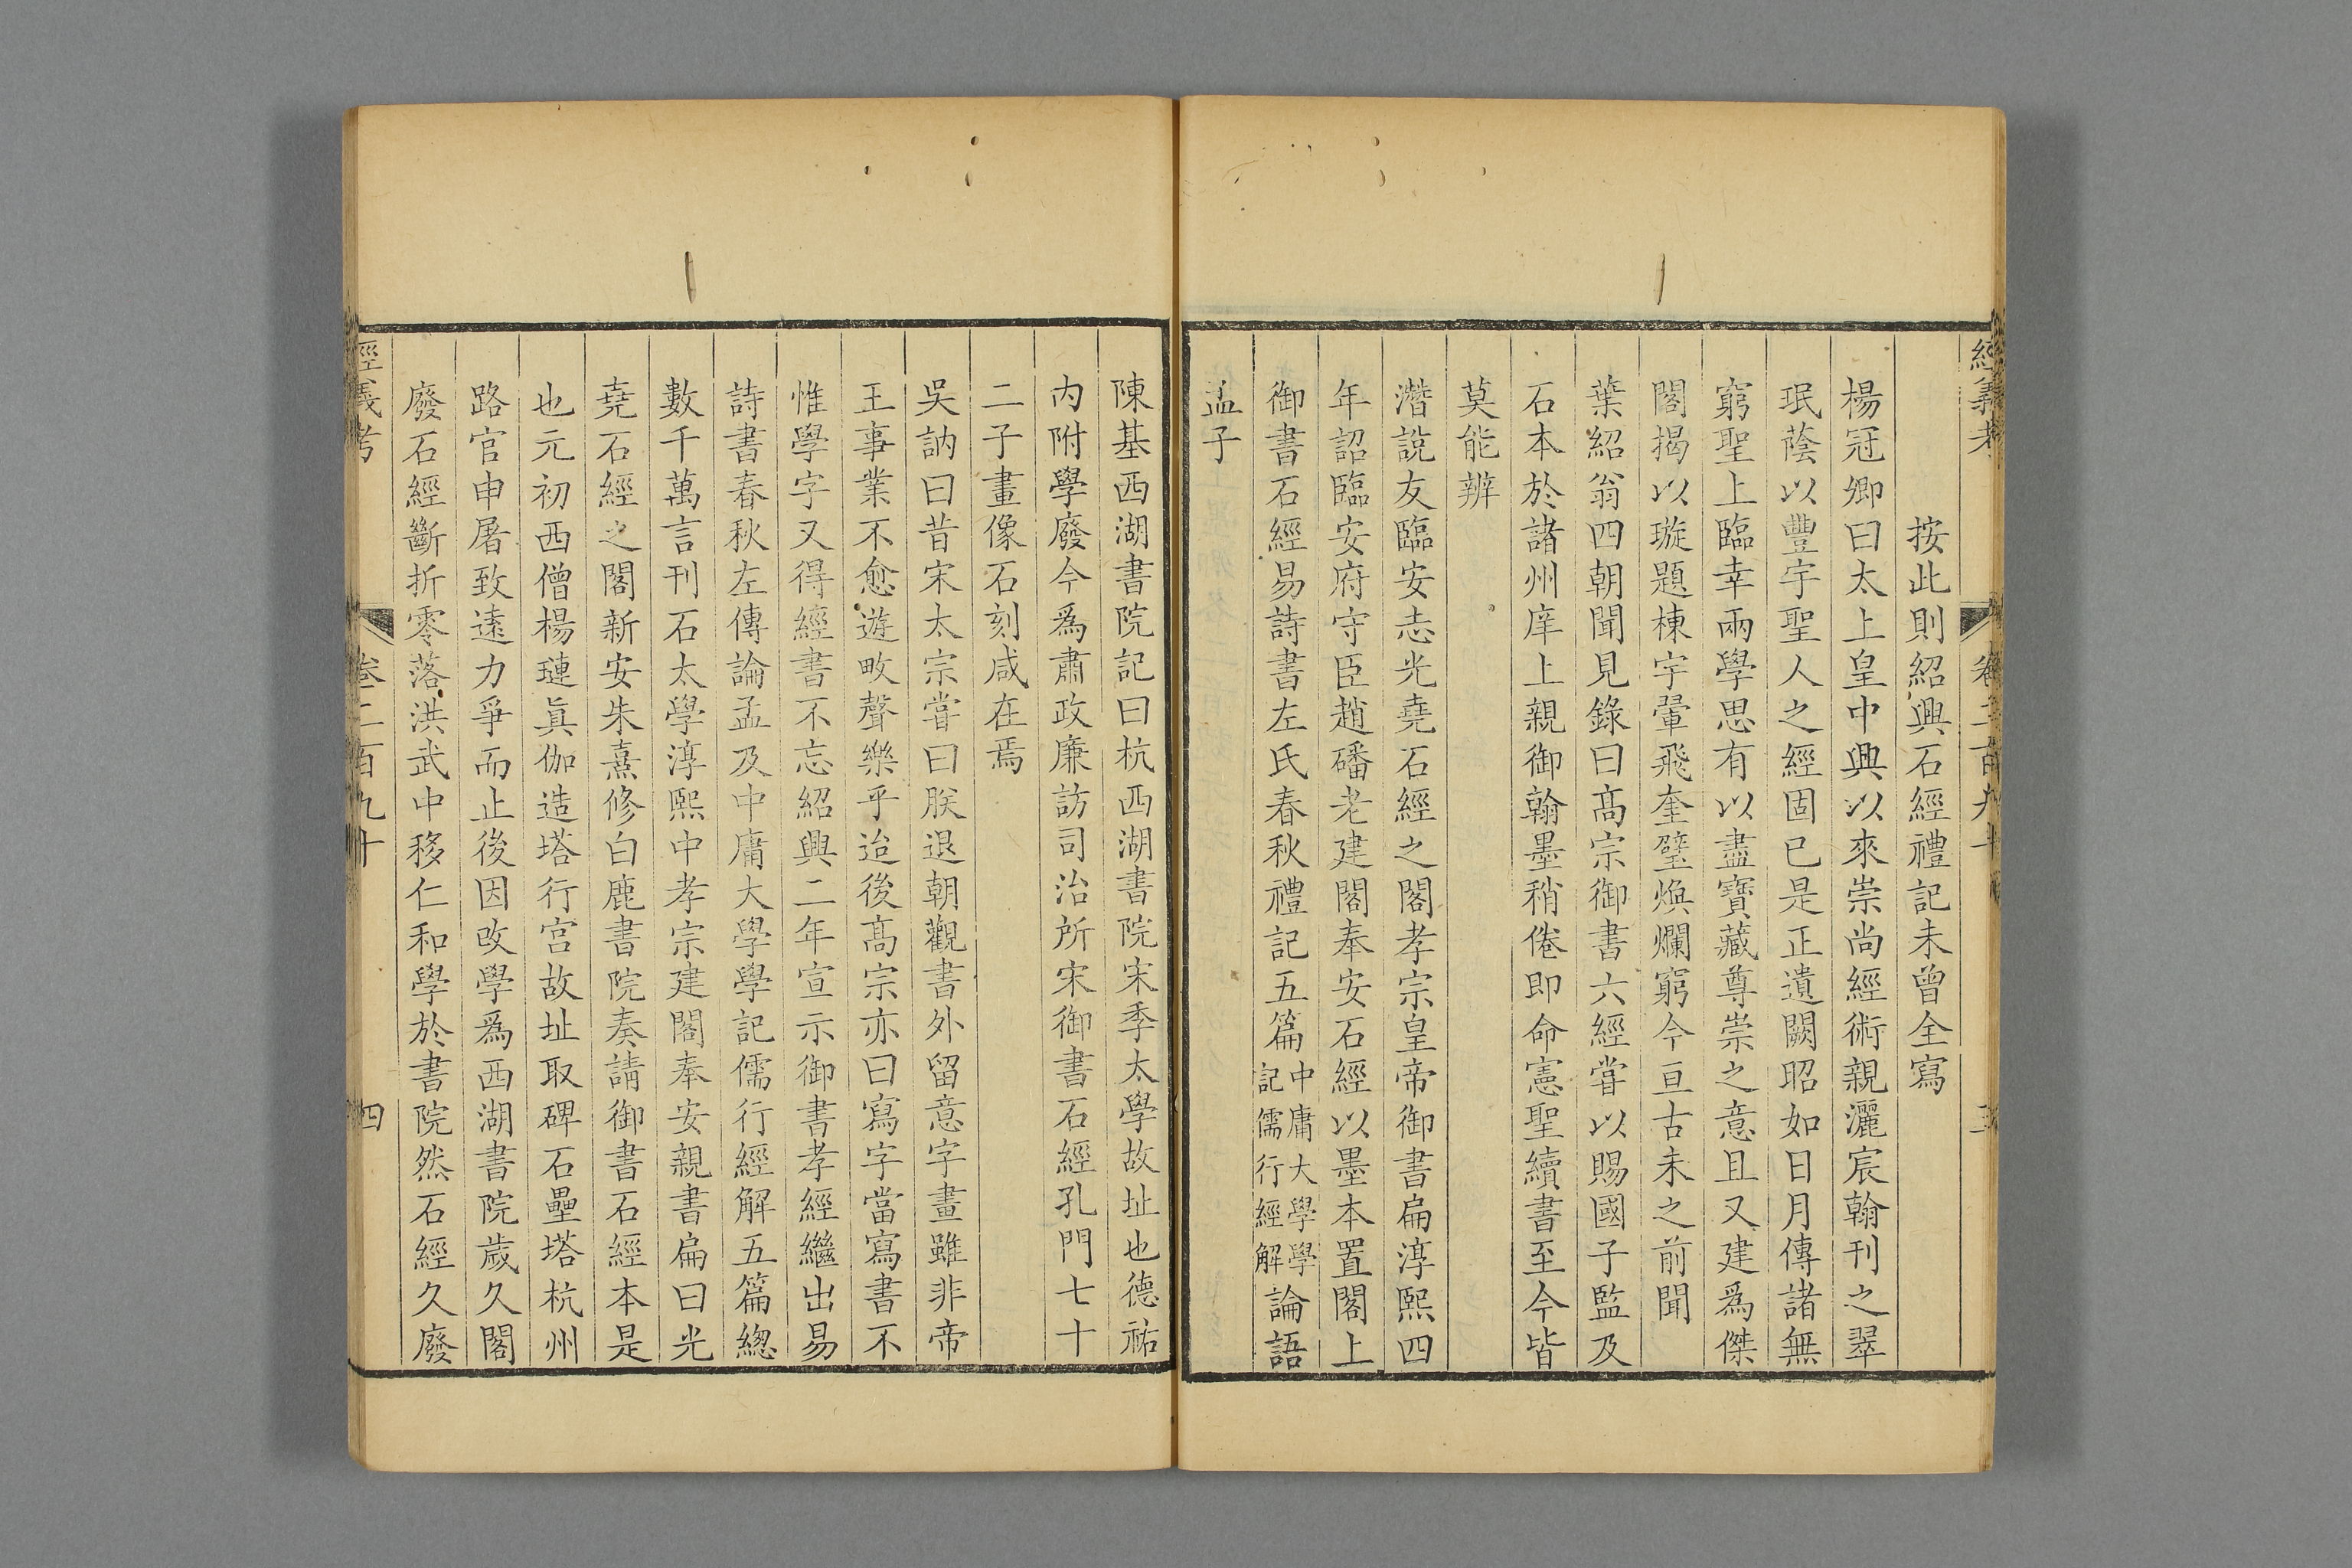 經義考
卷二百九十
三
按此則紹興石經禮記未曾全寫
楊冠卿曰太上皇中興以來崇尚經術親灑宸翰刊之翠
珉蔭以豐宇聖人之經固已是正遺闕昭如日月傳諸無
窮聖上臨幸兩學思有以盡寶藏尊崇之意且又建爲傑
閣揭以璇題棟宇翬飛奎璧煥爛窮今亘古未之前聞
葉紹翁四朝聞見錄曰髙宗御書六經嘗以賜國子監及
石本於諸州庠上親御翰墨稍倦即命憲聖續書至今皆
莫能辨
潛說友臨安志光堯石經之閣孝宗皇帝御書扁淳熙四
年詔臨安府守臣趙磻老建閣奉安石經以墨本置閣上
御書石經易詩書左氏春秋禮記五篇中庸大學學記儒行經解論語
孟子
陳基西湖書院記曰杭西湖書院宋季太學故址也德祐
內附學廢今爲肅政廉訪司治所宋御書石經孔門七十
二子畫像石刻咸在焉
吳訥曰昔宋太宗嘗曰朕退朝觀書外留意字畫雖非帝
王事業不愈遊畋聲樂乎迨後髙宗亦曰寫字當寫書不
惟學字又得經書不忘紹興二年宣示御書孝經繼出易
詩書春秋左傳論孟及中庸大學學記儒行經解五篇緫
數千萬言刊石太學淳熙中孝宗建閣奉安親書扁曰光
堯石經之閣新安朱熹修白鹿書院奏請御書石經本是
也元初西僧楊璉眞伽造塔行宮故址取碑石壘塔杭州
路官申屠致遠力爭而止後因改學爲西湖書院歲久閣
廢石經斷折零落洪武中移仁和學於書院然石經久廢
經義考
卷二百九十
四